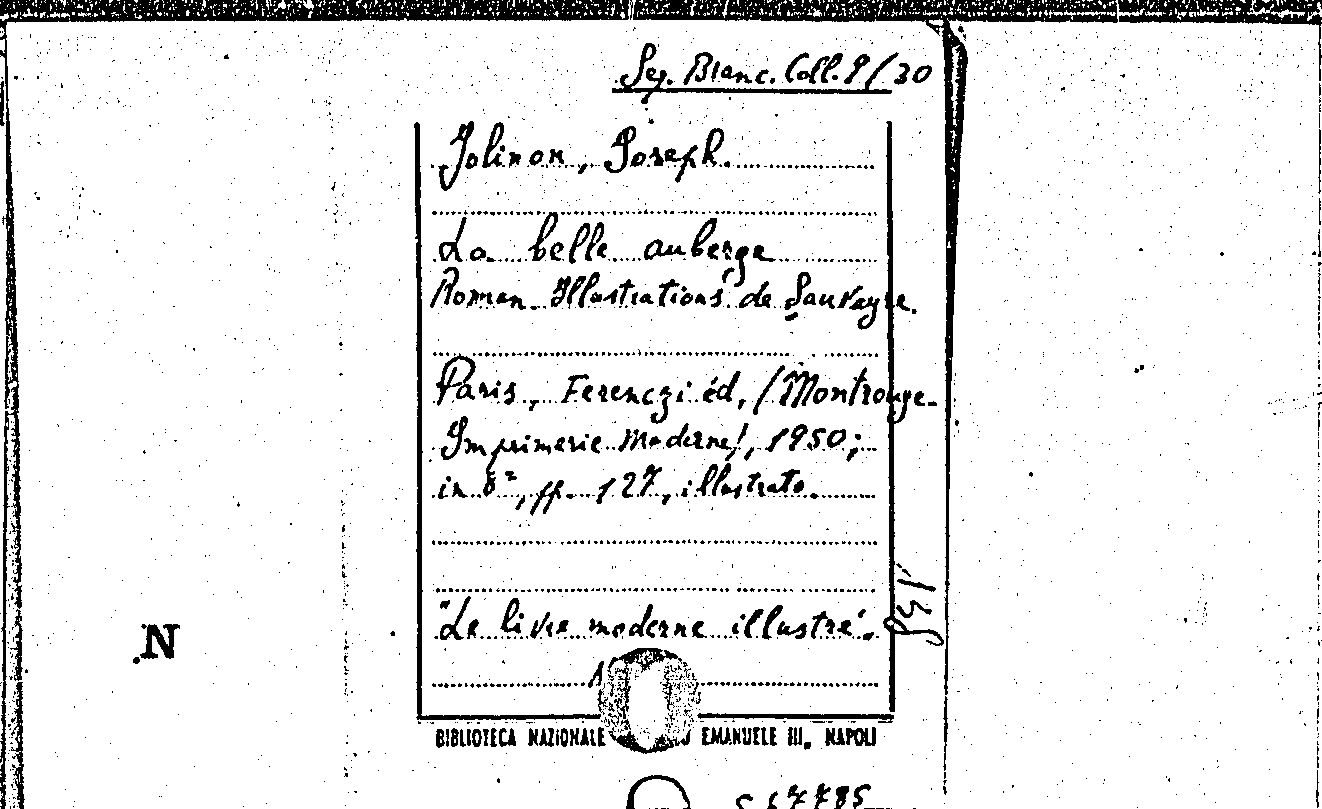 Seg. Blanc. Coll. 9/30
Jolinon, Joseph.
La belle auberge
Roman. Illustrations de Sauvayre.
Paris, Ferenczi éd, /Montrouge.
Imprimerie Moderne/, 1950;
in 8º, pp. 127, illustrato.
"Le livre moderne illustré.
N
BIBLIOTECA NAZIONALE EMANUELE III, NAPOLI